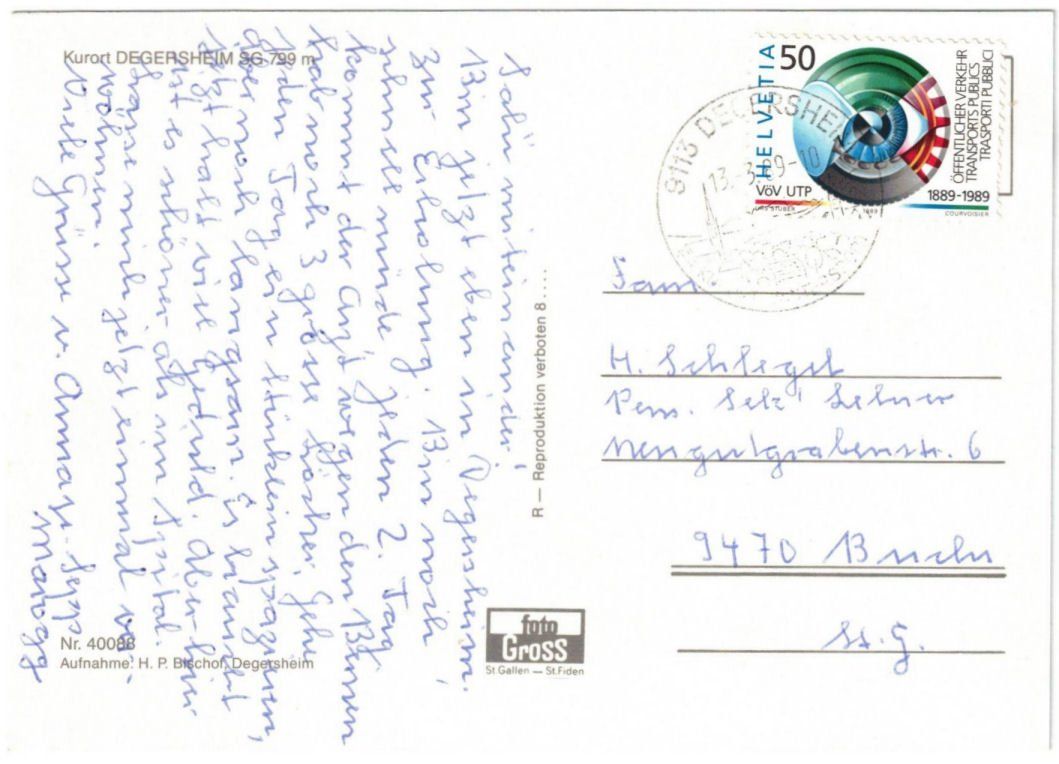 Kurort DEGERSHEIM SG 799 m
Salü miteinander!
Bin jetzt eben in Degersheim.
zur Erholung. Bin noch
sehr müde jeden 2. Tag
kommt der Arzt wegen den Beinen
hab noch 3 grosse Löcher, gehe
jeden Tag ein Stücklein spazieren,
aber noch langsam. Es braucht
jetzt halt viel Geduld. Aber hier
ist es schöner als im Spital.
Lasse mich jetzt einmal ver
wöhnen.
Viele Grüsse v. Sepp
Marogg
Nr. 40088
Aufnahme: H. P. Bischof, Degersheim
R — Reproduktion verboten 8 . . . .
foto
GROSS
St.Gallen — St.Fiden
HELVETIA
50
ÖFFENTLICHER VERKEHR
TRANSPORTS PUBLICS
TRASPORTI PUBBLICI
VöV UTP
1889-1989
URS STUBER
1989
COURVOISIER
9113 DEGERSHEIM
13.-3.89-10
Fam.
H. Schlegel
Pens. Sekr.
9470 Buchs
St. G.